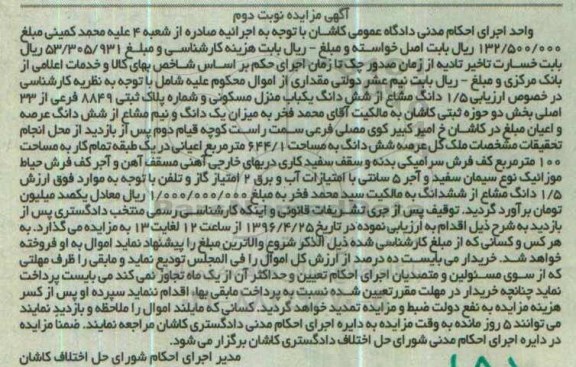 آگهی مزایده نوبت دوم
واحد اجرای احکام مدنی دادگاه عمومی کاشان با توجه به اجرائیه صادره از شعبه ۴ علیه محمد کمینی مبلغ
۱۳۲/۵۰۰/۰۰۰ ریال بابت اصل خواسته و مبلغ – ریال بابت هزینه کارشناسی و مبلغ ۵۳/۳۰۵/۹۳۱ ریال
بابت خسارت تاخیر تادیه از زمان صدور چک تا زمان اجرای حکم بر اساس شاخص بهای کالا و خدمات اعلامی از
بانک مرکزی و مبلغ – ریال بابت نیم عشر دولتی مقداری از اموال محکوم علیه شامل با توجه به نظریه کارشناسی
در خصوص ارزیابی ۱/۵ دانگ مشاع از شش دانگ یکباب منزل مسکونی و شماره پلاک ثبتی ۸۸۴۹ فرعی از ۳۳
اصلی بخش دو حوزه ثبتی کاشان به مالکیت آقای محمد فخر به میزان یک دانگ و نیم مشاع از شش دانگ عرصه
و اعیان مطلق در کاشان خ امیر کبیر کوی مصلی فرعی سمت راست کوچه قیام دوم پس از بازدید از محل انجام
تحقیقات مشخصات ملک کل عرصه شش دانگ به مساحت ۶۴۴/۱ مترمربع اعیانی در یک طبقه تمام کار به مساحت
۱۰۰ مترمربع کف فرش سرامیکی بدنه و سقف سفید کاری دربهای خارجی آهنی مسقف آهن و آجر کف فرش حیاط
موزائیک نوع سیمان سفید و آجر ۵ سانتی با امتیازات آب و برق ۲ امتیاز گاز و تلفن با توجه به موارد فوق ارزش
۱/۵ دانگ مشاع از ششدانگ به مالکیت سید محمد فخر به مبلغ ۱/۰۰۰/۰۰۰/۰۰۰ ریال معادل یکصد میلیون
تومان برآورد گردید. توقیف پس از جری تشریفات قانونی و اینکه کارشناسی رسمی منتخب دادگستری پس از
بازدید به شرح ذیل اقدام به ارزیابی نموده در تاریخ ۱۳۹۶/۴/۲۵ از ساعت ۱۲ لغایت ۱۳ به مزایده می گذارد. به
هر کس و کسانی که از مبلغ کارشناسی شده ذیل الذکر شروع و الاترین مبلغ را پیشنهاد نماید اموال به او فروخته
خواهد شد. خریدار می بایست ده درصد از ارزش کل اموال را فی المجلس تودیع نماید و مابقی را ظرف مهلتی
که از سوی مسئولین و متصدیان اجرای احکام تعیین و حداکثر آن از یک ماه تجاوز نمی کند می بایست پرداخت
نماید چنانچه خریدار در مهلت مقرر تعیین شده نسبت به پرداخت مابقی بهاء اقدام ننماید سپرده او پس از کسر
هزینه مزایده به نفع دولت ضبط و مزایده تمدید خواهد گردید. کسانی که مایلند اموال را ملاحظه و بازدید نمایند
می توانند ۵ روز مانده به وقت مزایده به دایره اجرای احکام مدنی دادگستری کاشان مراجعه نمایند. ضمنا مزایده
در دایره اجرای احکام مدنی شورای حل اختلاف دادگستری کاشان برگزار می شود.
مدیر اجرای احکام شورای حل اختلاف کاشان